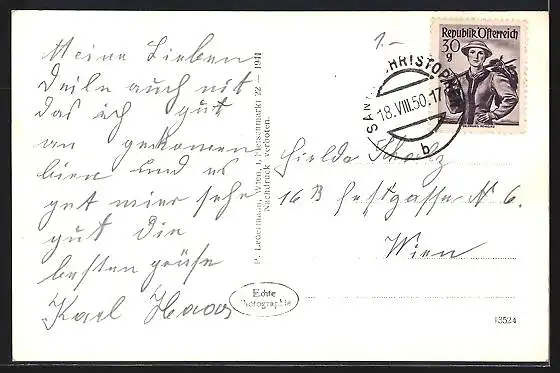 Meine Lieben
Teile auch mit
das ich gut
an gekomen
bien und es
get mier sehr
gut die
besten grüse
Karl Haas
P. Ledermann, Wien, I., Fleischmarkt 22 — 1941
Nachdruck verboten.
Echte
Photographie
1.-
Republik Österreich
30
g
SANKT CHRISTOPH
18.VIII.50-17
b
16 B Festgasse N 6.
Wien
13524